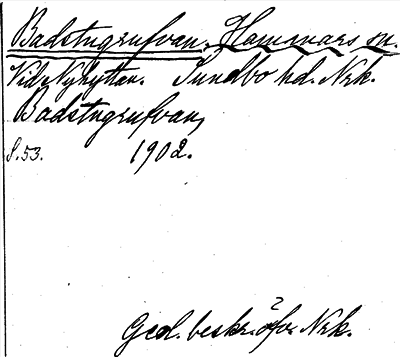 Badstugrufvan. Hammars sn.
Vid Nyhytan. Sundbo hd. Nrk.
Badstugrufvan,
S. 53. 1902.
Geol. beskr. öfver Nrk.